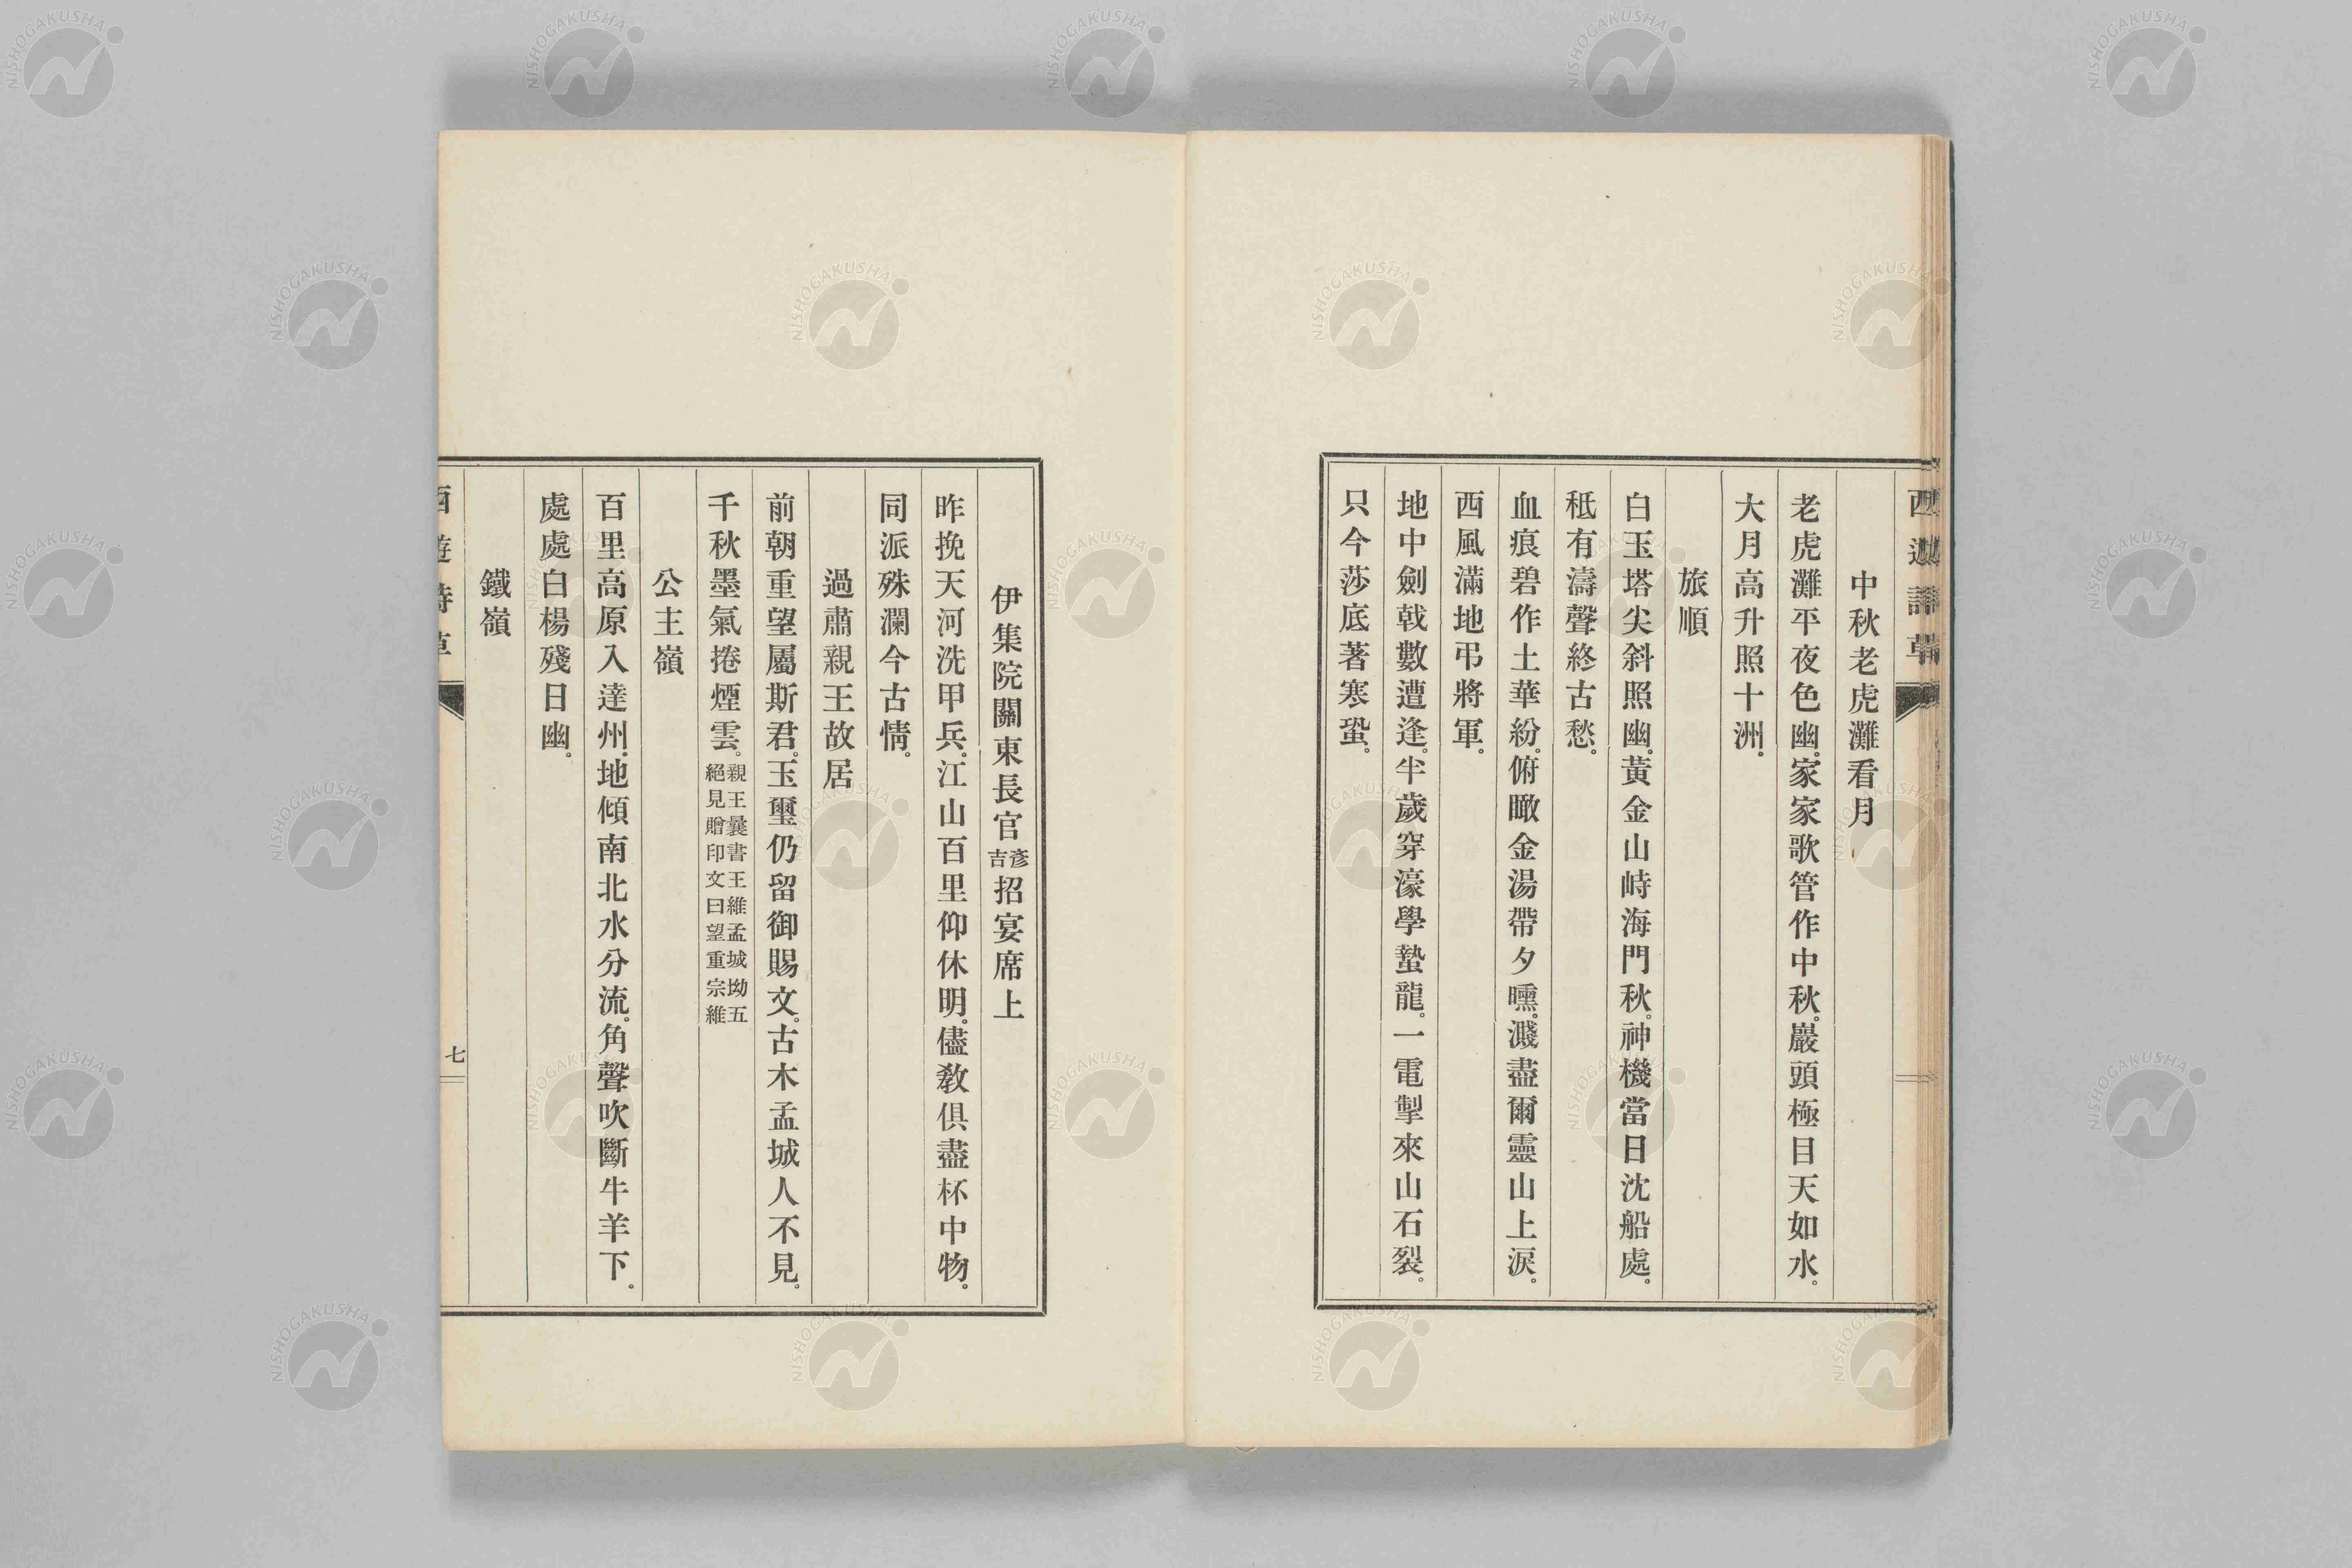 西遊詩草
中秋老虎灘看月
老虎灘平夜色幽。家家歌管作中秋。巖頭極目天如水。
大月高升照十洲。
旅順
白玉塔尖斜照幽。黃金山峙海門秋。神機當日沈船處。
秪有濤聲終古愁。
血痕碧作土華紛。俯瞰金湯帶夕曛。濺盡爾靈山上淚。
西風滿地弔將軍。
地中劍戟數遭逢。半歲穿濠學蟄龍。一電掣來山石裂。
只今莎底著寒蛩。
伊集院關東長官彥吉招宴席上
昨挽天河洗甲兵。江山百里仰休明。儘敎俱盡杯中物。
同派殊瀾今古情。
過肅親王故居
前朝重望屬斯君。玉璽仍留御賜文。古木孟城人不見。
千秋墨氣捲煙雲。親王曩書王維孟城坳五
絕見贈印文曰望重宗維
公主嶺
百里高原入達州。地傾南北水分流。角聲吹斷牛羊下。
處處白楊殘日幽。
鐵嶺
西遊詩草
七
NISHOGAKUSHA